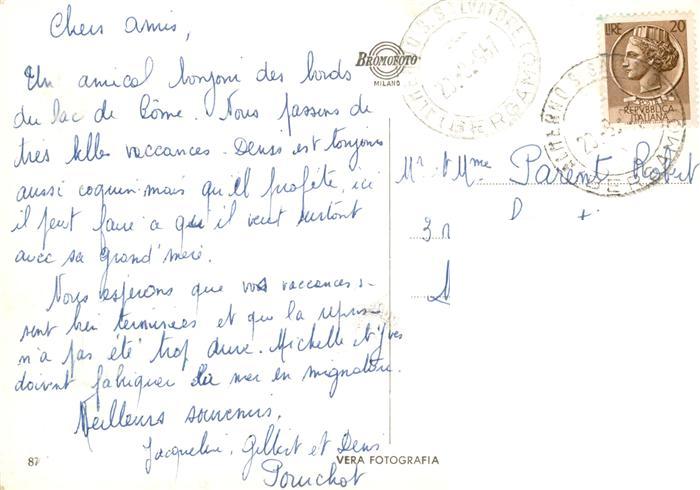 Chers amis,
Un amical bonjour des bords
du lac de Côme. Nous passons de
très belles vaccances. Denis est toujours
aussi coquin mais qu'il profite, ici
il peut faire ce qu'il veut surtout
avec sa grand'mère.
Nous espérons que vos vaccances se
sont bien terminées et que la reprise
n'a pas été trop dure. Michelle et Yves
doivent fabriquer la mer en mignature.
Meilleurs souvenirs,
Jacqueline, Gilbert et Denis
87
BROMOFOTO
MILANO
VERA FOTOGRAFIA
S. SALVATORE
BERGAMO
LIRE 20
REPVBBLICA
ITALIANA
Mr et Mme Parent Robert